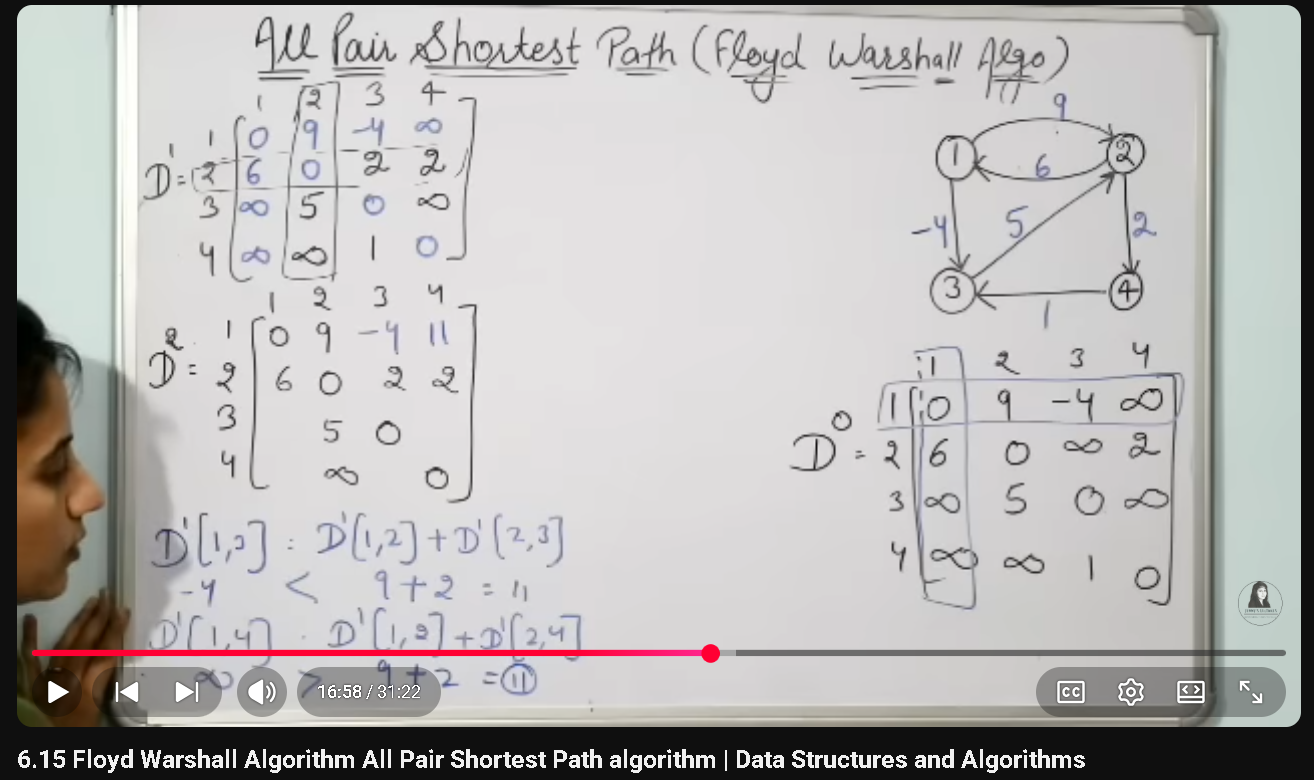 All Pair Shortest Path (Floyd Warshall Algo)
1 2 3 4
D¹ =
1 0 9 -4 ∞
2 6 0 2 2
3 ∞ 5 0 ∞
4 ∞ ∞ 1 0
1 2 3 4
D² =
1 0 9 -4 11
2 6 0 2 2
3 5 0
4 ∞ 0
D¹[1,3] : D¹[1,2] + D¹[2,3]
-4 < 9+2 = 11
D¹[1,4] . D¹[1,2] + D¹[2,4]
∞ > 9+2 = 11
9
1 2
6
-4 5 2
3 4
1
1 2 3 4
D⁰ =
1 0 9 -4 ∞
2 6 0 ∞ 2
3 ∞ 5 0 ∞
4 ∞ ∞ 1 0
16:58 / 31:22
CC
6.15 Floyd Warshall Algorithm All Pair Shortest Path algorithm | Data Structures and Algorithms